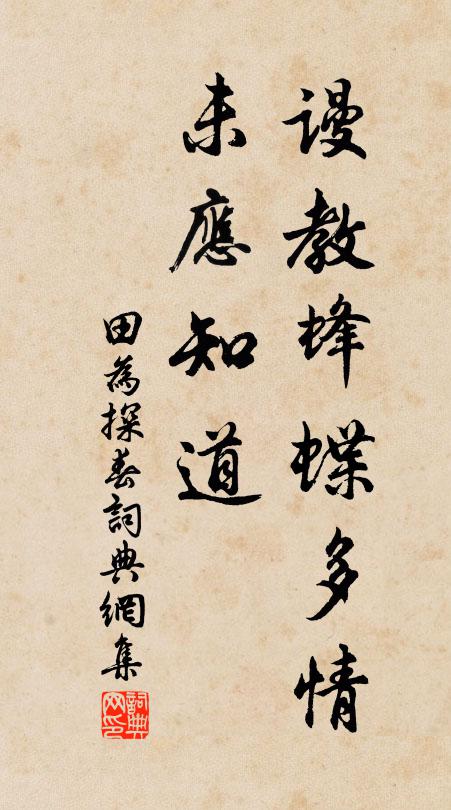 謾教蜂蝶多情
未應知道
田為探春詞典網集
詞典网印